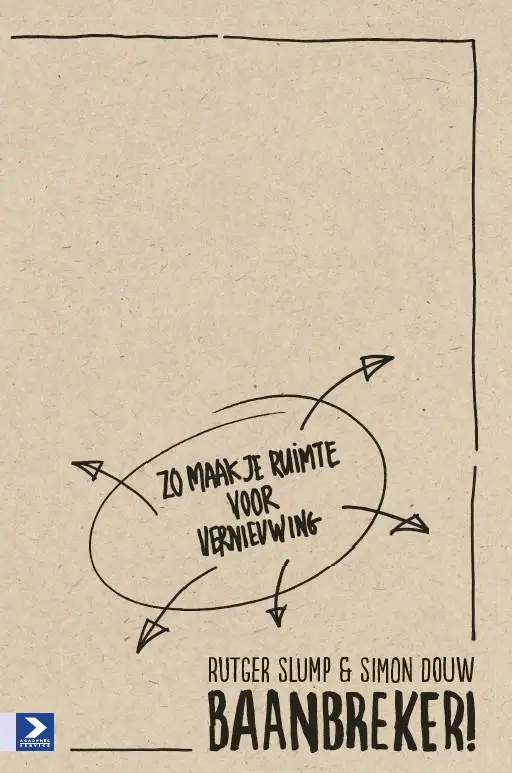 ZO MAAK JE RUIMTE
VOOR
VERNIEUWING
RUTGER SLUMP & SIMON DOUW
BAANBREKER!
ACADEMIC
SERVICE